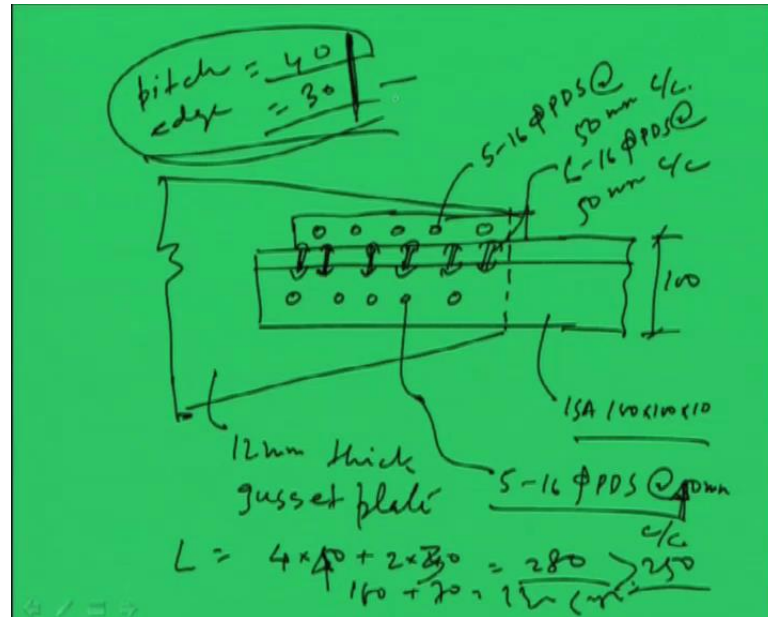 pitch = 40
edge = 30
5-16 φ PDS @
50 mm c/c.
6-16 φ PDS @
50 mm c/c
100
ISA 100x100x10
12 mm thick
gusset plate
5-16 φ PDS @ mm
c/c.
L = 4 × 40 + 2 × 30 = 280 > 250
160 +